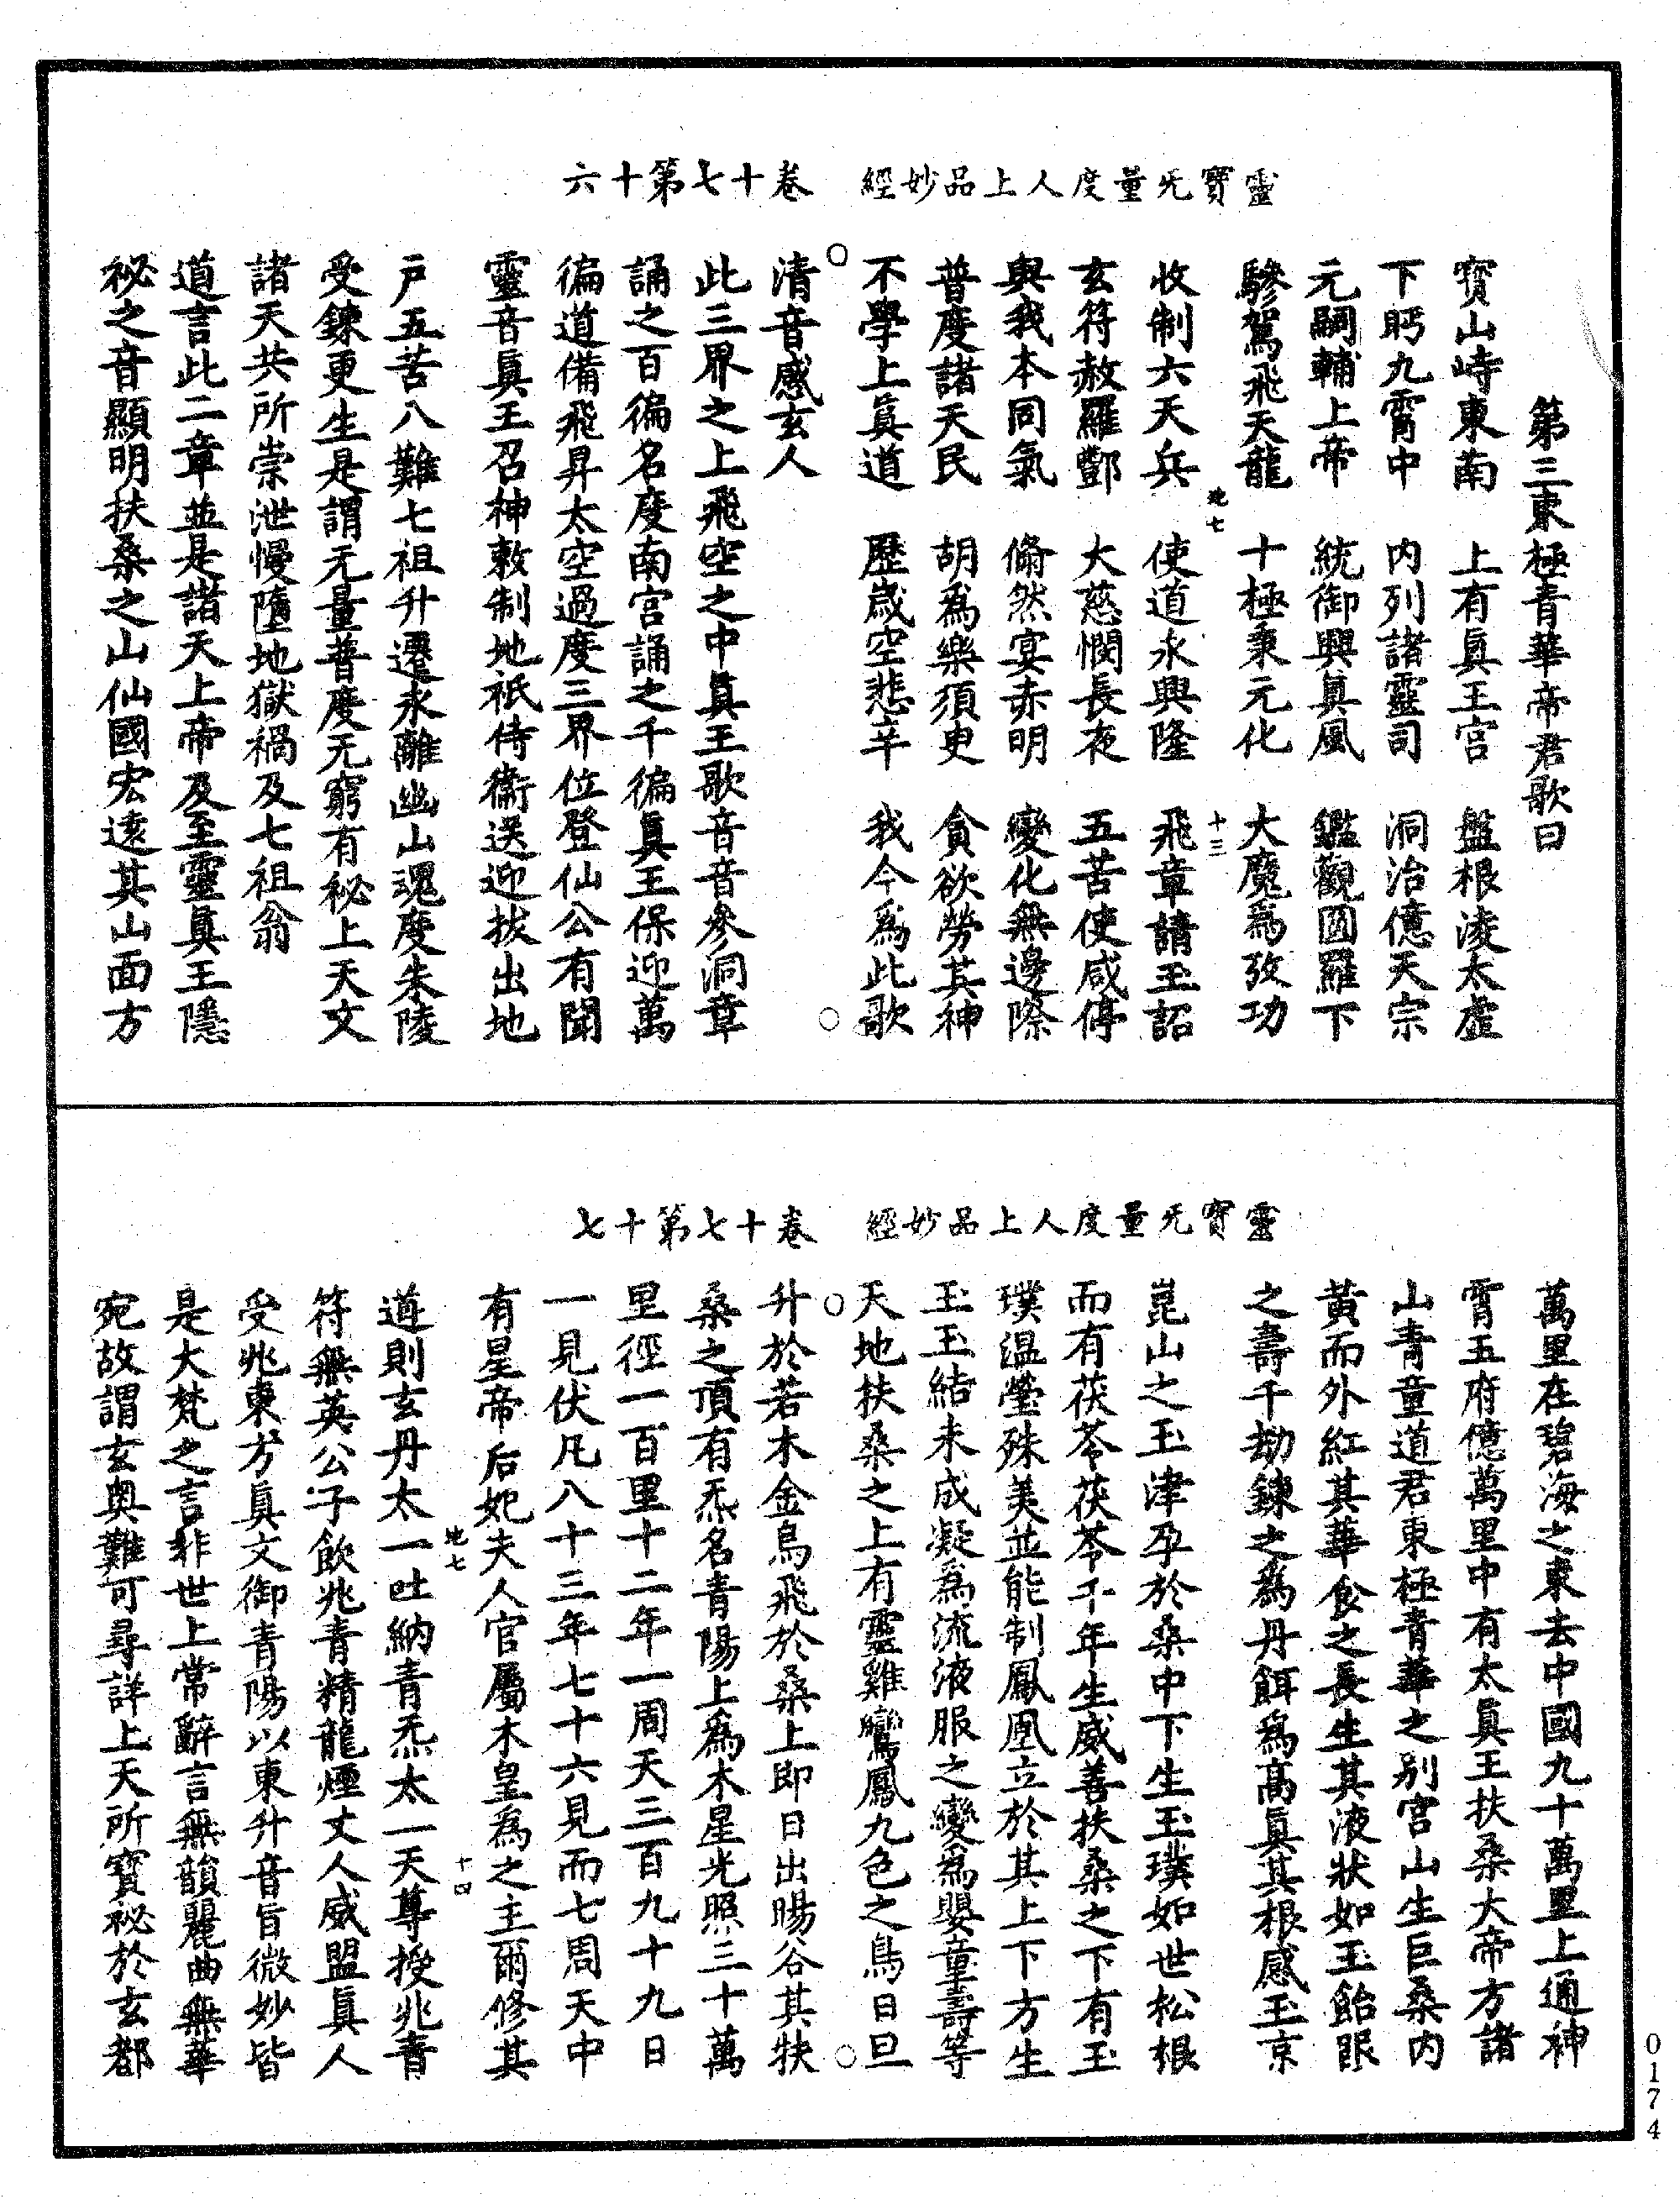 靈寶无量度人上品妙經 卷十七第十六
第三東極青華帝君歌曰
寳山峙東南 上有眞王宮 盤根淩太虛
下眄九霄中 内列諸靈司 洞治億天宗
元嗣輔上帝 統御興眞風 鑑觀圓羅下
驂駕飛天龍 十極秉元化 大魔爲攷功
地七 十三
收制六天兵 使道永興隆 飛章請玉詔
玄符赦羅酆 大慈憫長夜 五苦使咸停
與我本同氣 翛然宴赤明 變化無邊際
普度諸天民 胡爲樂須臾 貪欲勞其神
不學上眞道 歷歳空悲辛 我今爲此歌
清音感玄人
此三界之上飛空之中眞王歌音音參洞章
誦之百徧名度南宮誦之千徧眞王保迎萬
徧道備飛昇太空過度三界位登仙公有聞
靈音眞王召神敕制地祇侍衞送迎拔出地
戸五苦八難七祖升遷永離幽山魂度朱陵
受鍊更生是謂无量普度无窮有秘上天文
諸天共所崇泄慢墮地獄禍及七祖翁
道言此二章並是諸天上帝及至靈眞王隱
祕之音顯明扶桑之山仙國宏遠其山面方
靈寶无量度人上品妙經 卷十七第十七
萬里在碧海之東去中國九十萬里上通神
霄五府億萬里中有太眞王扶桑大帝方諸
山青童道君東極青華之别宮山生巨桑内
黃而外紅其華食之長生其液狀如玉飴服
之壽千劫鍊之爲丹餌爲高眞其根感玉京
崑山之玉津孕於桑中下生玉璞如世松根
而有茯苓茯苓千年生威善扶桑之下有玉
璞温瑩殊美並能制鳳凰立於其上下方生
玉玉結未成凝爲流液服之變爲嬰童壽等
天地扶桑之上有靈雞鸞鳳九色之鳥日旦
升於若木金烏飛於桑上即日出暘谷其扶
桑之頂有炁名青陽上爲木星光照三十萬
里徑一百里十二年一周天三百九十九日
一見伏凡八十三年七十六見而七周天中
有星帝后妃夫人官屬木皇爲之主爾修其
地七 十四
道則玄丹太一吐納青炁太一天尊授兆青
符無英公子飲兆青精龍煙丈人威盟眞人
受兆東方眞文御青陽以東升音旨微妙皆
是大梵之言非世上常辭言無韻麗曲無華
宛故謂玄奥難可尋詳上天所寶秘於玄都
0174